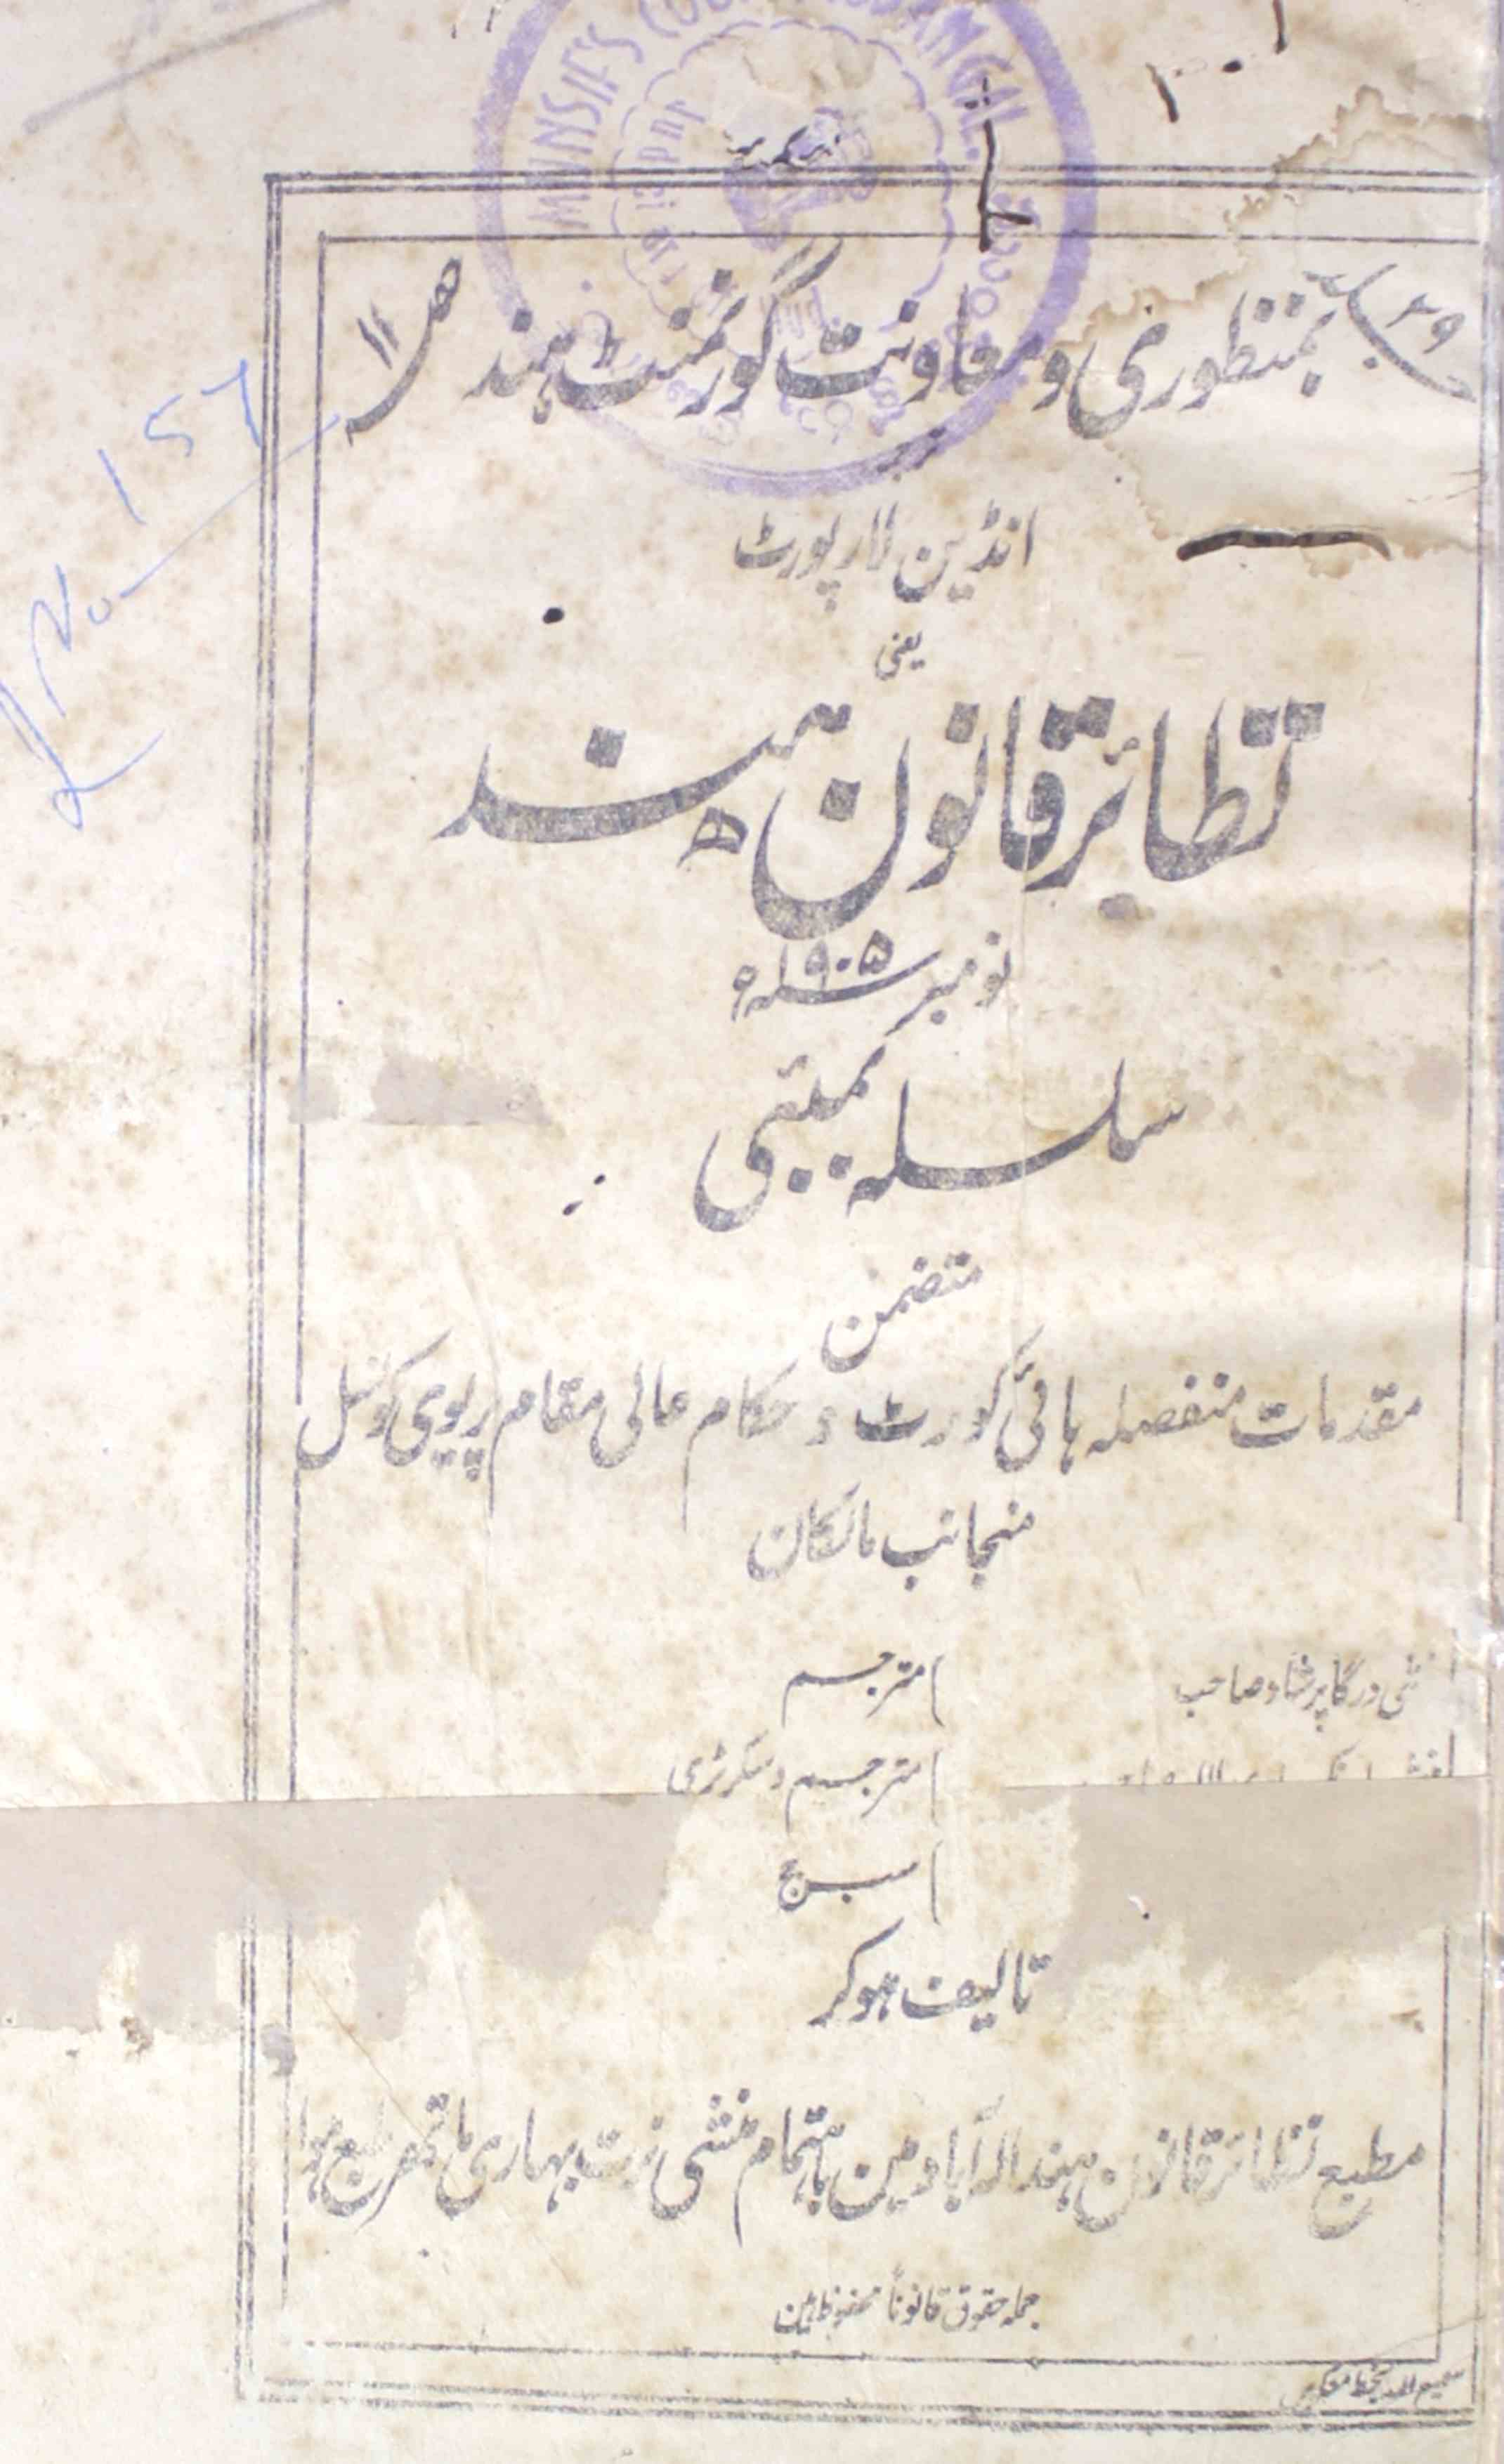 MUNSIF'S
بمنظوری ومعاونت گورنمنٹ ہند
انڈین لا رپورٹ
یعنی
نظائر قانون ہند
نومبر ۱۹۰۵ء
سلسلہ بمبئی
متضمن
مقدمات منفصلہ ہائی کورٹ و حکام عالی مقام پریوی کونسل
منجانب مالکان
منشی درگا پرشاد صاحب مترجم
مترجم وسکرٹری
تالیف ہوکر
مطبع نظائر قانون ہند الہ آباد مین باہتمام منشی بہاری ماتھر طبع ہوا
جملہ حقوق قانوناً محفوظ ہین
No 157